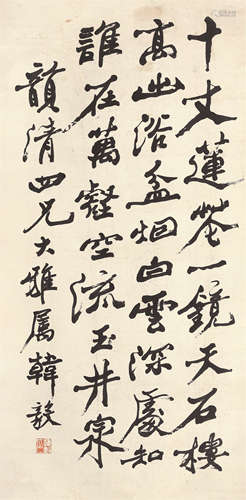 十丈蓮花一鏡天石樓
高出浴盆烟白雲深處知
誰在萬壑空流玉井泉
韻清四兄大雅属韓敏